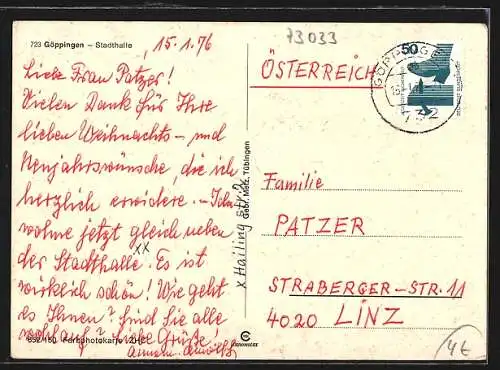 723 Göppingen – Stadthalle
15.1.76
73033
Liebe Frau Patzer!
Vielen Dank für Ihre
lieben Weihnachts- und
Neujahrswünsche, die ich
herzlich erwidere. – Ich
wohne jetzt gleich neben
der Stadthalle xx. Es ist
wirklich schön! Wie geht
es Ihnen? Sind Sie alle
wohlauf? Liebe Grüße
Farbphotokarte
Gebr. Metz, Tübingen
x Hailing str. 2
ÖSTERREICH
50
GÖPPINGEN
732
Familie
PATZER
STRABERGER-STR. 11
4020 LINZ
4€